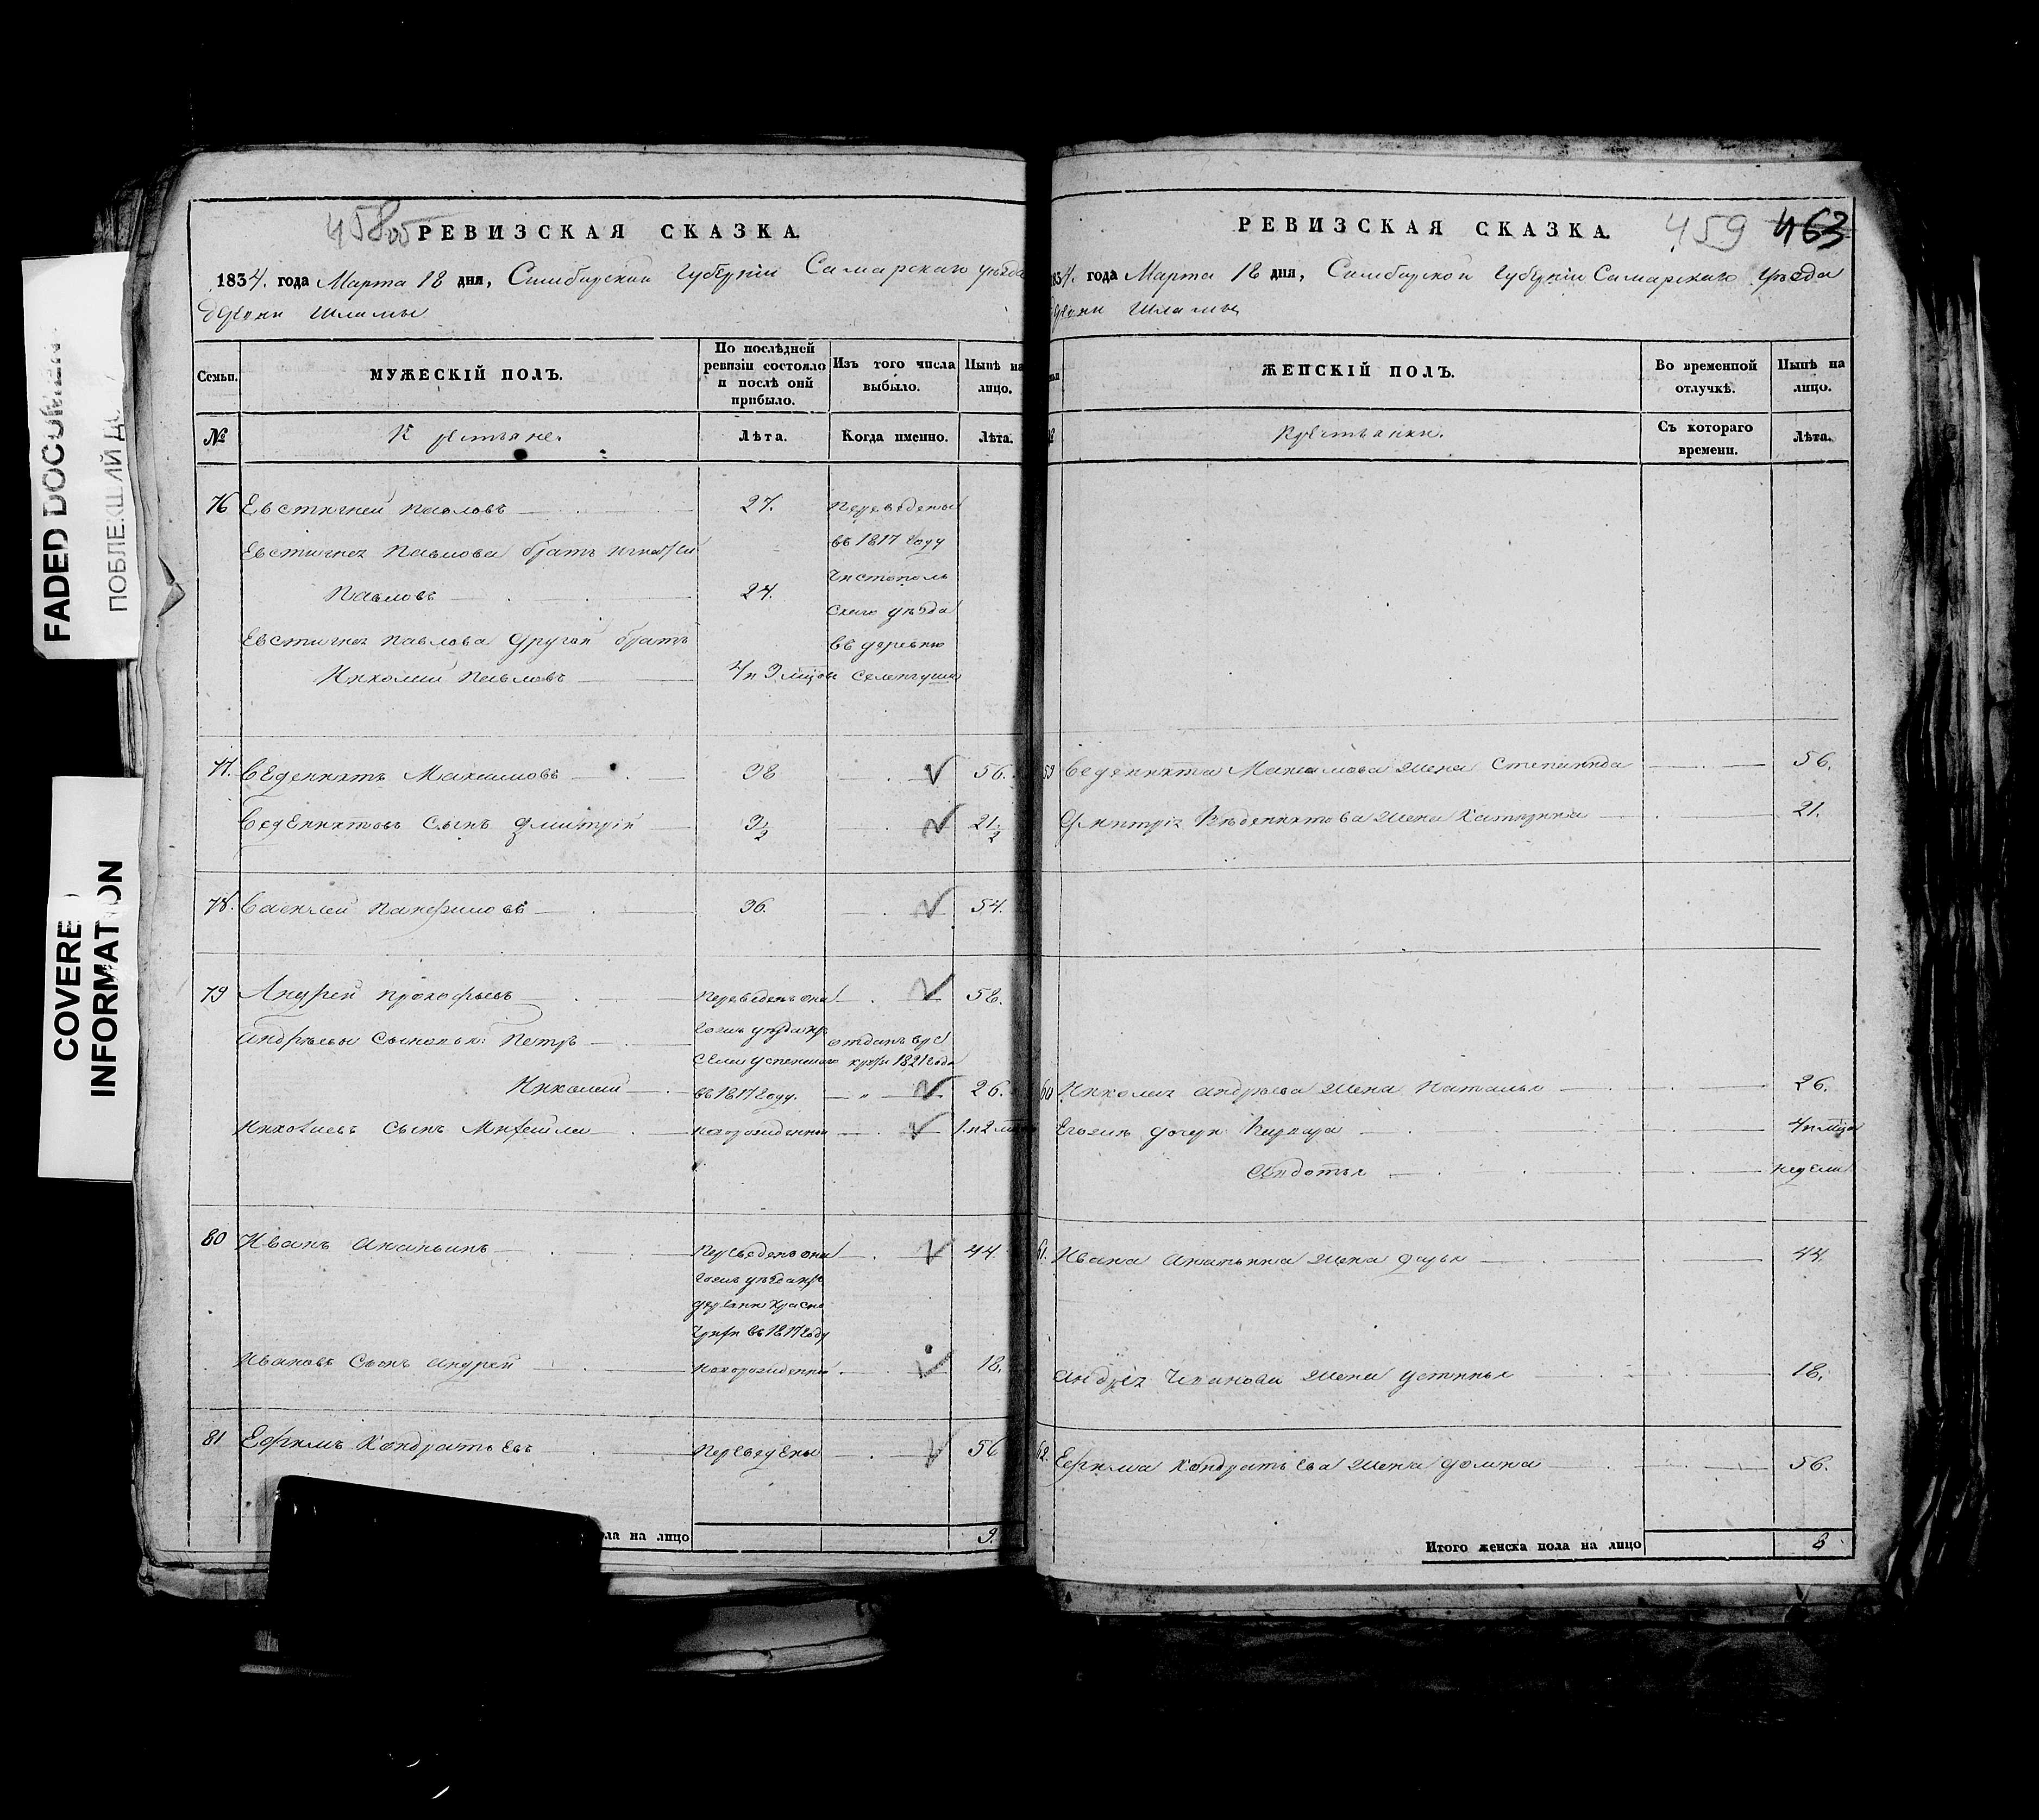 FADED DOCUMEN
ПОБЛЕКШИЙ ДО
COVERE
INFORMATION
458об
РЕВИЗСКАЯ СКАЗКА.
1834. года Марта 18 дня, Симбирской губерніи Самарскаго уѣзда
дрвни Шламы
Семьи.
МУЖЕСКІЙ ПОЛЪ.
По послѣдней ревизіи состояло и послѣ оной прибыло.
Изъ того числа выбыло.
Нынѣ на лицо.
№
Крестьяне.
Лѣта.
Когда именно.
Лѣта.
76 Евстигней Павловъ 27. Переведены
Евстигнея Павлова братъ въ 1817 году
Павловъ 24. Чистополь
скаго уѣзда
Евстигнея Павлова другой братъ въ деревню
Николай Павловъ 4 и 3 мцов
77. Веденихтъ Максимовъ 38 56.
Веденихтовъ сынъ Дмитрій 3½ 21½
78. Василей Панфиловъ 36. 54.
79 Андрей Прокофьевъ Переведенъ она 58.
Андреевы сыновья: Петръ гожъ уѣзда изъ отданъ въ
села Успенскаго 1821 года
Николай въ 1817 году. 26.
Николаевъ сынъ Михайла новорожденной 1. и 2 мцов
80 Иванъ Ананьинъ Переведенъ она 44.
гожъ уѣзда изъ
деревни Красно
въ 1817 году
Ивановъ сынъ Андрей новорожденной 18.
81 Ефимъ Кондратьевъ Переведены 56
ла на лицо 9.
РЕВИЗСКАЯ СКАЗКА.
459 463
34. года Марта 18 дня, Симбирской губерніи Самарскаго уѣзда
дрвни Шламы
ЖЕНСКІЙ ПОЛЪ.
Во временной отлучкѣ.
Нынѣ на лицо.
Крестьянки.
Съ котораго времени.
Лѣта.
59 Веденихта Максимова жена Степанида 56.
Дмитрія Веденихтова жена Катерина 21.
60 Николая Андреева жена Наталья 26.
Егожъ дочери Варвара 4 и мцов
Авдотья недели
61. Ивана Ананьина жена Дарья 44.
Андрея Иванова жена Устинья 18.
62. Ефима Кондратьева жена Домна 56.
Итого женска пола на лицо 8